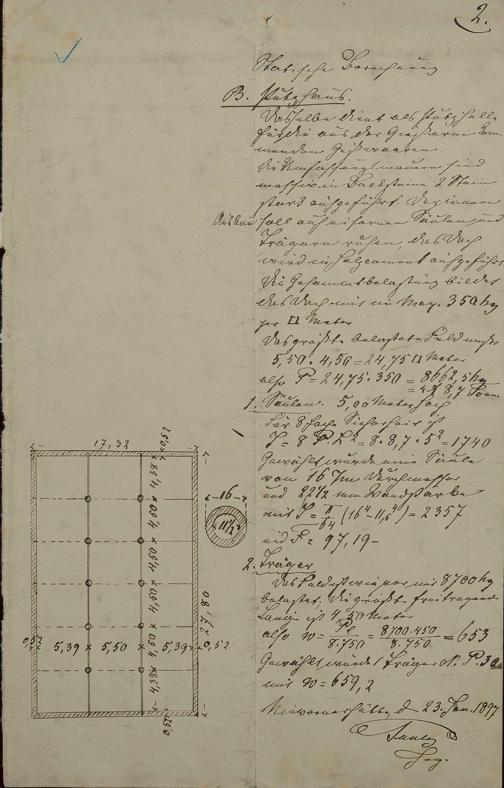 2.
Statische Berechnung
B. Putzhaus.
Dasselbe dient als Putzhalle
für die aus der Giesserei kom
menden Gusswaaren.
Die Umfassungsmauern sind
massiv in Backsteine 2 Stein
stark ausgeführt. Der innere
Ausbau soll auf eisernen Säulen und
Trägern ruhen, das Dach
wird in Holzcement ausgeführt
Die Gesammtbelastung bildet
das Dach mit im Max. 350 kg
per □ Meter
Das größte belastete Feld
5,50 · 4,50 = 24,75 □ Meter
also P = 24,75 · 350 = 8662,5 kg
= 8,7 Tonn
1. Säulen. 5,00 Meter hoch
Für 8 fache Sicherheit ist
J = 8 P · l² = 8 · 8,7 · 5² = 1740
Gewählt wurde eine Säule
von 16 Durchmesser
und 22½ mm Wandstärke
mit J = π/64 (16⁴ - 11,5⁴) = 2357
und F = 97,19 -
2. Träger
Das Feld ist wie vor mit 8700 kg
belastet. Die größte freitragende
Länge ist 4,50 Meter
also W = Pl/8·750 = 8700·450/8·750 = 653
Gewählt wurde Träger N. P. 30
mit W = 659,2
d. 23. Jan. 1897
Ing.
17,32
16
11½
27,80
0,52
5,39 × 5,50 × 5,39
0,52
4,50
4,50
4,50
4,50